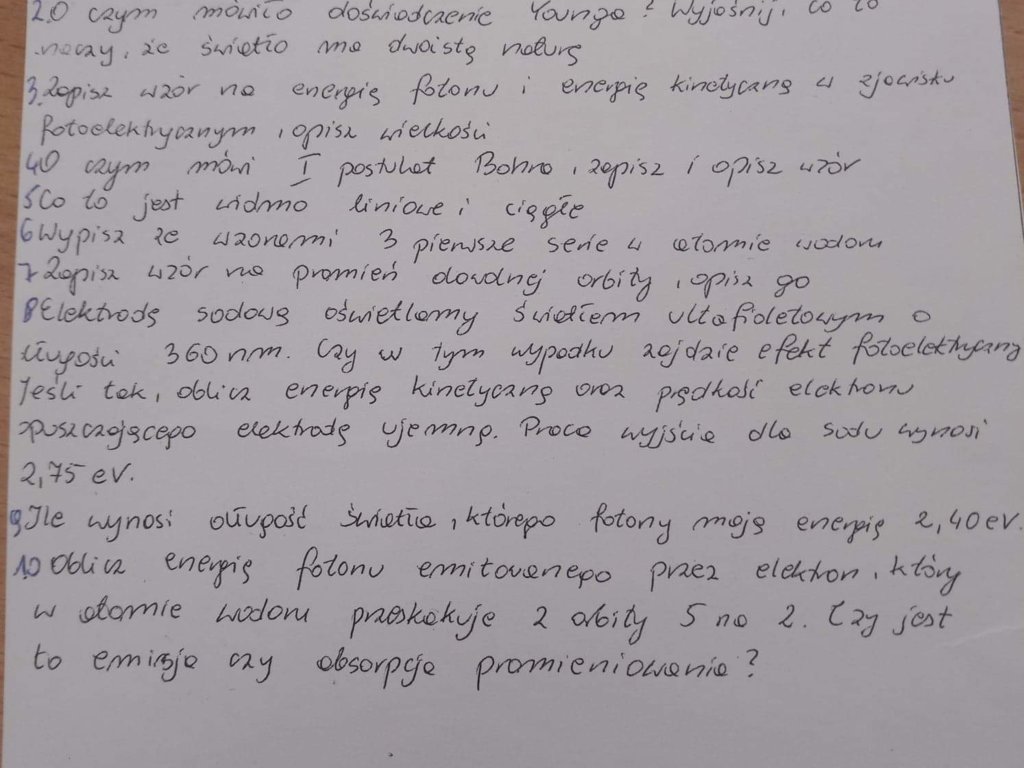 2.O czym mówiło doświadczenie Younga? Wyjaśnij, co to
znaczy, że światło ma dwoistą naturę
3.Zapisz wzór na energię fotonu i energię kinetyczną w zjawisku
fotoelektrycznym, opisz wielkości
4O czym mówi I postulat Bohra, zapisz i opisz wzór
5Co to jest widmo liniowe i ciągłe
6Wypisz ze wzorami 3 pierwsze serie w atomie wodoru
7Zapisz wzór na promień dowolnej orbity, opisz go
8Elektrodę sodową oświetlamy światłem ultafioletowym o
długości 360 nm. Czy w tym wypadku zajdzie efekt fotoelektryczny
Jeśli tak, oblicz energię kinetyczną oraz prędkość elektronu
opuszczającego elektrodę ujemną. Praca wyjścia dla sodu wynosi
2,75 eV.
9Ile wynosi długość światła, którego fotony mają energię 2,40 eV.
10 Oblicz energię fotonu emitowanego przez elektron, który
w atomie wodoru przeskakuje z orbity 5 na 2. Czy jest
to emisja czy absorpcja promieniowania?